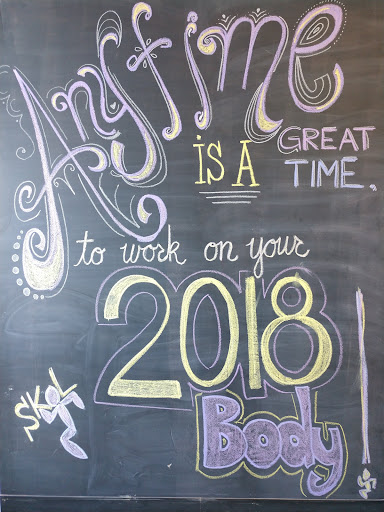 Anytime
IS A GREAT
TIME.
to work on your
2018
SKOL
Body